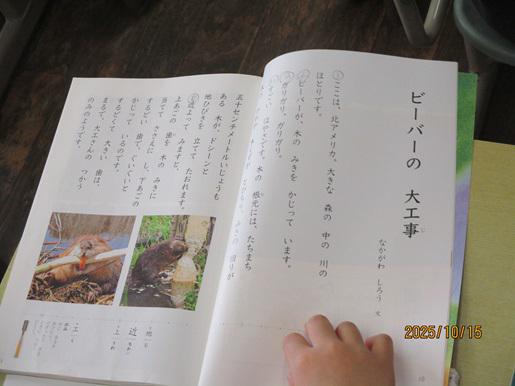 ビーバーの 大工事
なかがわ しろう 文
ここは、北アメリカ、大きな 森の 中の 川の
ほとりです。
ビーバーが、木の みきを かじって います。
ガリガリ、ガリガリ。
すごい はやさです。木の 根元には、たちまち
五十センチメートルいじょうも
ある 木が、ドシーンと
地ひびきを 立てて たおれます。
近よって みますと、
上あごの 歯を 木の みきに
当てて ささえに し、下あごの
するどい 歯で、ぐいぐいと
かじって いるのです。
するどくて 大きい 歯は、
まるで、大工さんの つかう
のみのようです。
地
近
上
2025/10/15